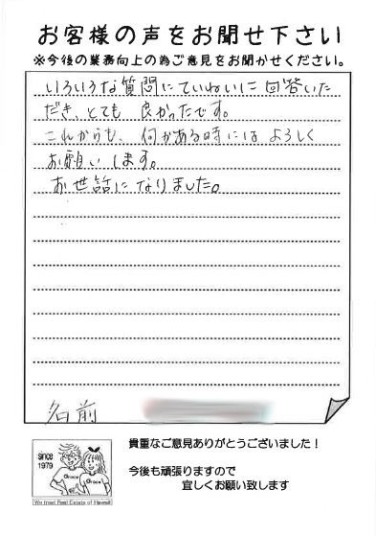 お客様の声をお聞せ下さい
※今後の業務向上の為ご意見をお聞かせください。
いろいろな質問にていねいに回答いた
だき、とても 良かったです。
これからも、何かある時にはよろしく
お願いします。
お世話になりました。
名前
since
1979
貴重なご意見ありがとうございました！
今後も頑張りますので
宜しくお願い致します